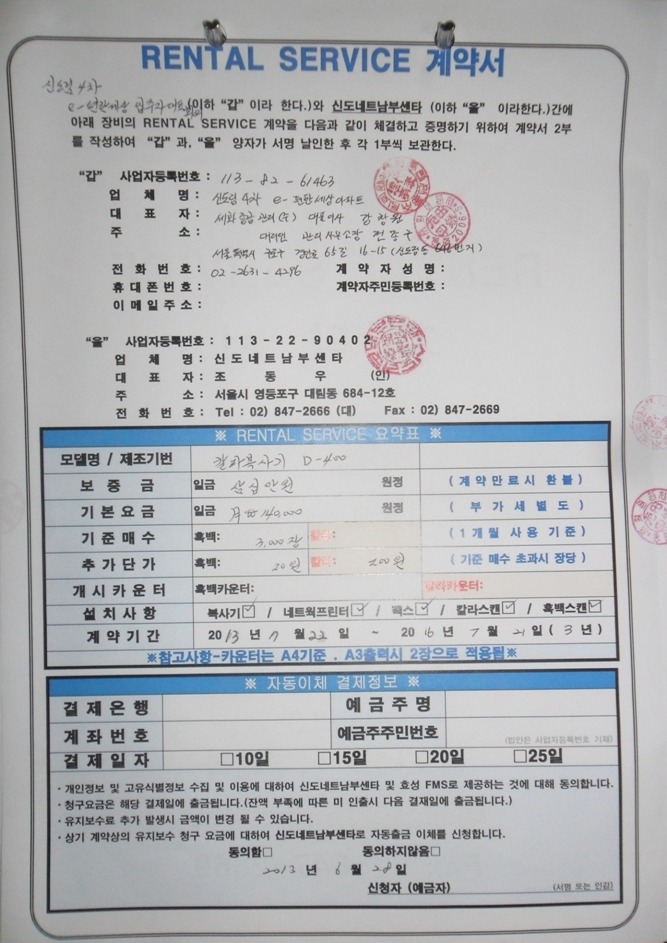 RENTAL SERVICE 계약서
신도림 4차
e-편한세상 입주자대표회의 (이하 “갑” 이라 한다.)와 신도네트남부센타 (이하 “을” 이라한다.)간에
아래 장비의 RENTAL SERVICE 계약을 다음과 같이 체결하고 증명하기 위하여 계약서 2부
를 작성하여 “갑” 과, “을” 양자가 서명 날인한 후 각 1부씩 보관한다.
“갑” 사업자등록번호 : 113-82-61463
업 체 명 : 신도림 4차 e-편한세상 아파트
대 표 자 : 세화종합관리(주) 대표이사 강창원
주 소 : 대리인 관리사무소장 전종구
서울특별시 구로구 경인로 65길 16-15 (신도림동
전 화 번 호 : 02-2631-4296 계 약 자 성 명 :
휴 대 폰 번 호 : 계약자주민등록번호 :
이 메 일 주 소 :
“을” 사업자등록번호 : 113-22-90402
업 체 명 : 신도네트남부센타
대 표 자 : 조 동 우 (인)
주 소 : 서울시 영등포구 대림동 684-12호
전 화 번 호 : Tel : 02) 847-2666 (대) Fax : 02) 847-2669
※ RENTAL SERVICE 요약표 ※
모델명 / 제조기번 칼라복사기 D-400
보 증 금 일금 삼십만원 원정 ( 계 약 만 료 시 환 불 )
기 본 요 금 일금 月₩140,000 원정 ( 부 가 세 별 도 )
기 준 매 수 흑백: 3,000장 칼라: ( 1 개월 사용 기준 )
추 가 단 가 흑백: 20원 칼라: 200원 ( 기준 매수 초과시 장당 )
개 시 카 운 터 흑백카운터: 칼라카운터:
설 치 사 항 복사기☑ / 네트웍프린터☑ / 팩스☑ / 칼라스캔☑ / 흑백스캔☑
계 약 기 간 2013 년 7 월 22 일 ~ 2016 년 7 월 21 일 ( 3 년 )
※참고사항-카운터는 A4기준 . A3출력시 2장으로 적용됨※
※ 자동이체 결제정보 ※
결 제 은 행 예 금 주 명
계 좌 번 호 예금주주민번호 (법인은 사업자등록번호 기재)
결 제 일 자 □10일 □15일 □20일 □25일
· 개인정보 및 고유식별정보 수집 및 이용에 대하여 신도네트남부센타 및 효성 FMS로 제공하는 것에 대해 동의합니다.
· 청구요금은 해당 결제일에 출금됩니다.(잔액 부족에 따른 미 인출시 다음 결재일에 출금됩니다.)
· 유지보수료 추가 발생시 금액이 변경 될 수 있습니다.
· 상기 계약상의 유지보수 청구 요금에 대하여 신도네트남부센타로 자동출금 이체를 신청합니다.
동의함□ 동의하지않음□
2013 년 6 월 28 일
신청자 (예금자) (서명 또는 인감)